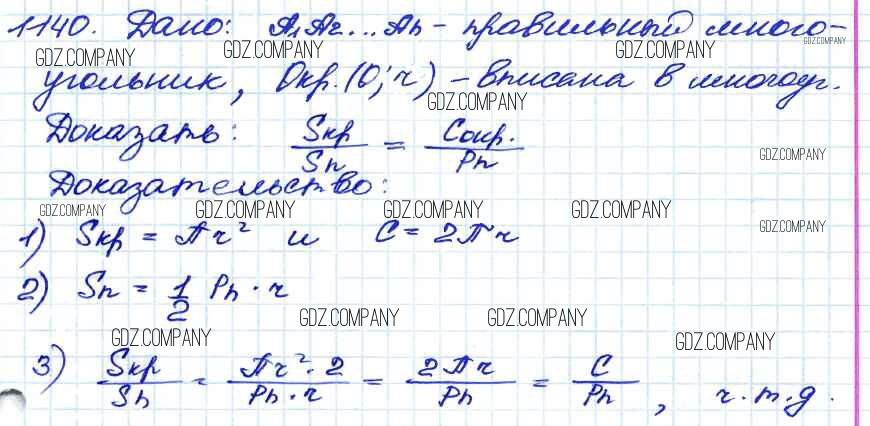 1140. Дано: A₁A₂...Aₙ - правильный много-
GDZ.COMPANY GDZ.COMPANY GDZ.COMPANY GDZ.COMPANY
угольник, Окр.(O; r) - вписана в многоуг.
GDZ.COMPANY
Доказать: Sкр/Sn = Cокр./Pn
GDZ.COMPANY
Доказательство:
GDZ.COMPANY GDZ.COMPANY GDZ.COMPANY GDZ.COMPANY GDZ.COMPANY
1) Sкр = πr² и C = 2πr
2) Sn = 1/2 Pn · r
GDZ.COMPANY GDZ.COMPANY
GDZ.COMPANY GDZ.COMPANY
3) Sкр/Sn = πr² · 2/Pn · r = 2πr/Pn = C/Pn, ч.т.д.